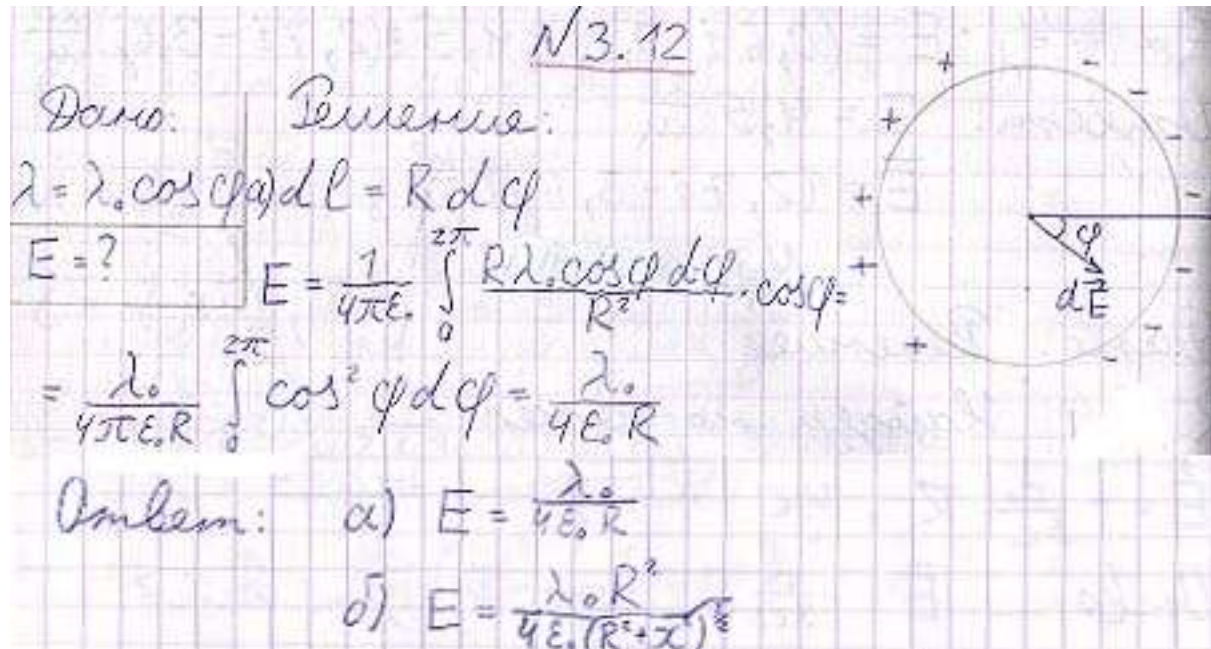 N 3.12
Дано: Решение:
λ = λ₀ cos φ а) dl = R dφ
E = ?
E = 1/(4πε₀) ∫₀^{2π} (Rλ₀ cos φ dφ)/R² · cos φ =
= λ₀/(4πε₀R) ∫₀^{2π} cos² φ dφ = λ₀/(4ε₀R)
Ответ: а) E = λ₀/(4ε₀R)
б) E = λ₀R²/(4ε₀(R²+x²)^{3/2})
+ + + + + +
- - - - - - - -
φ
dE⃗